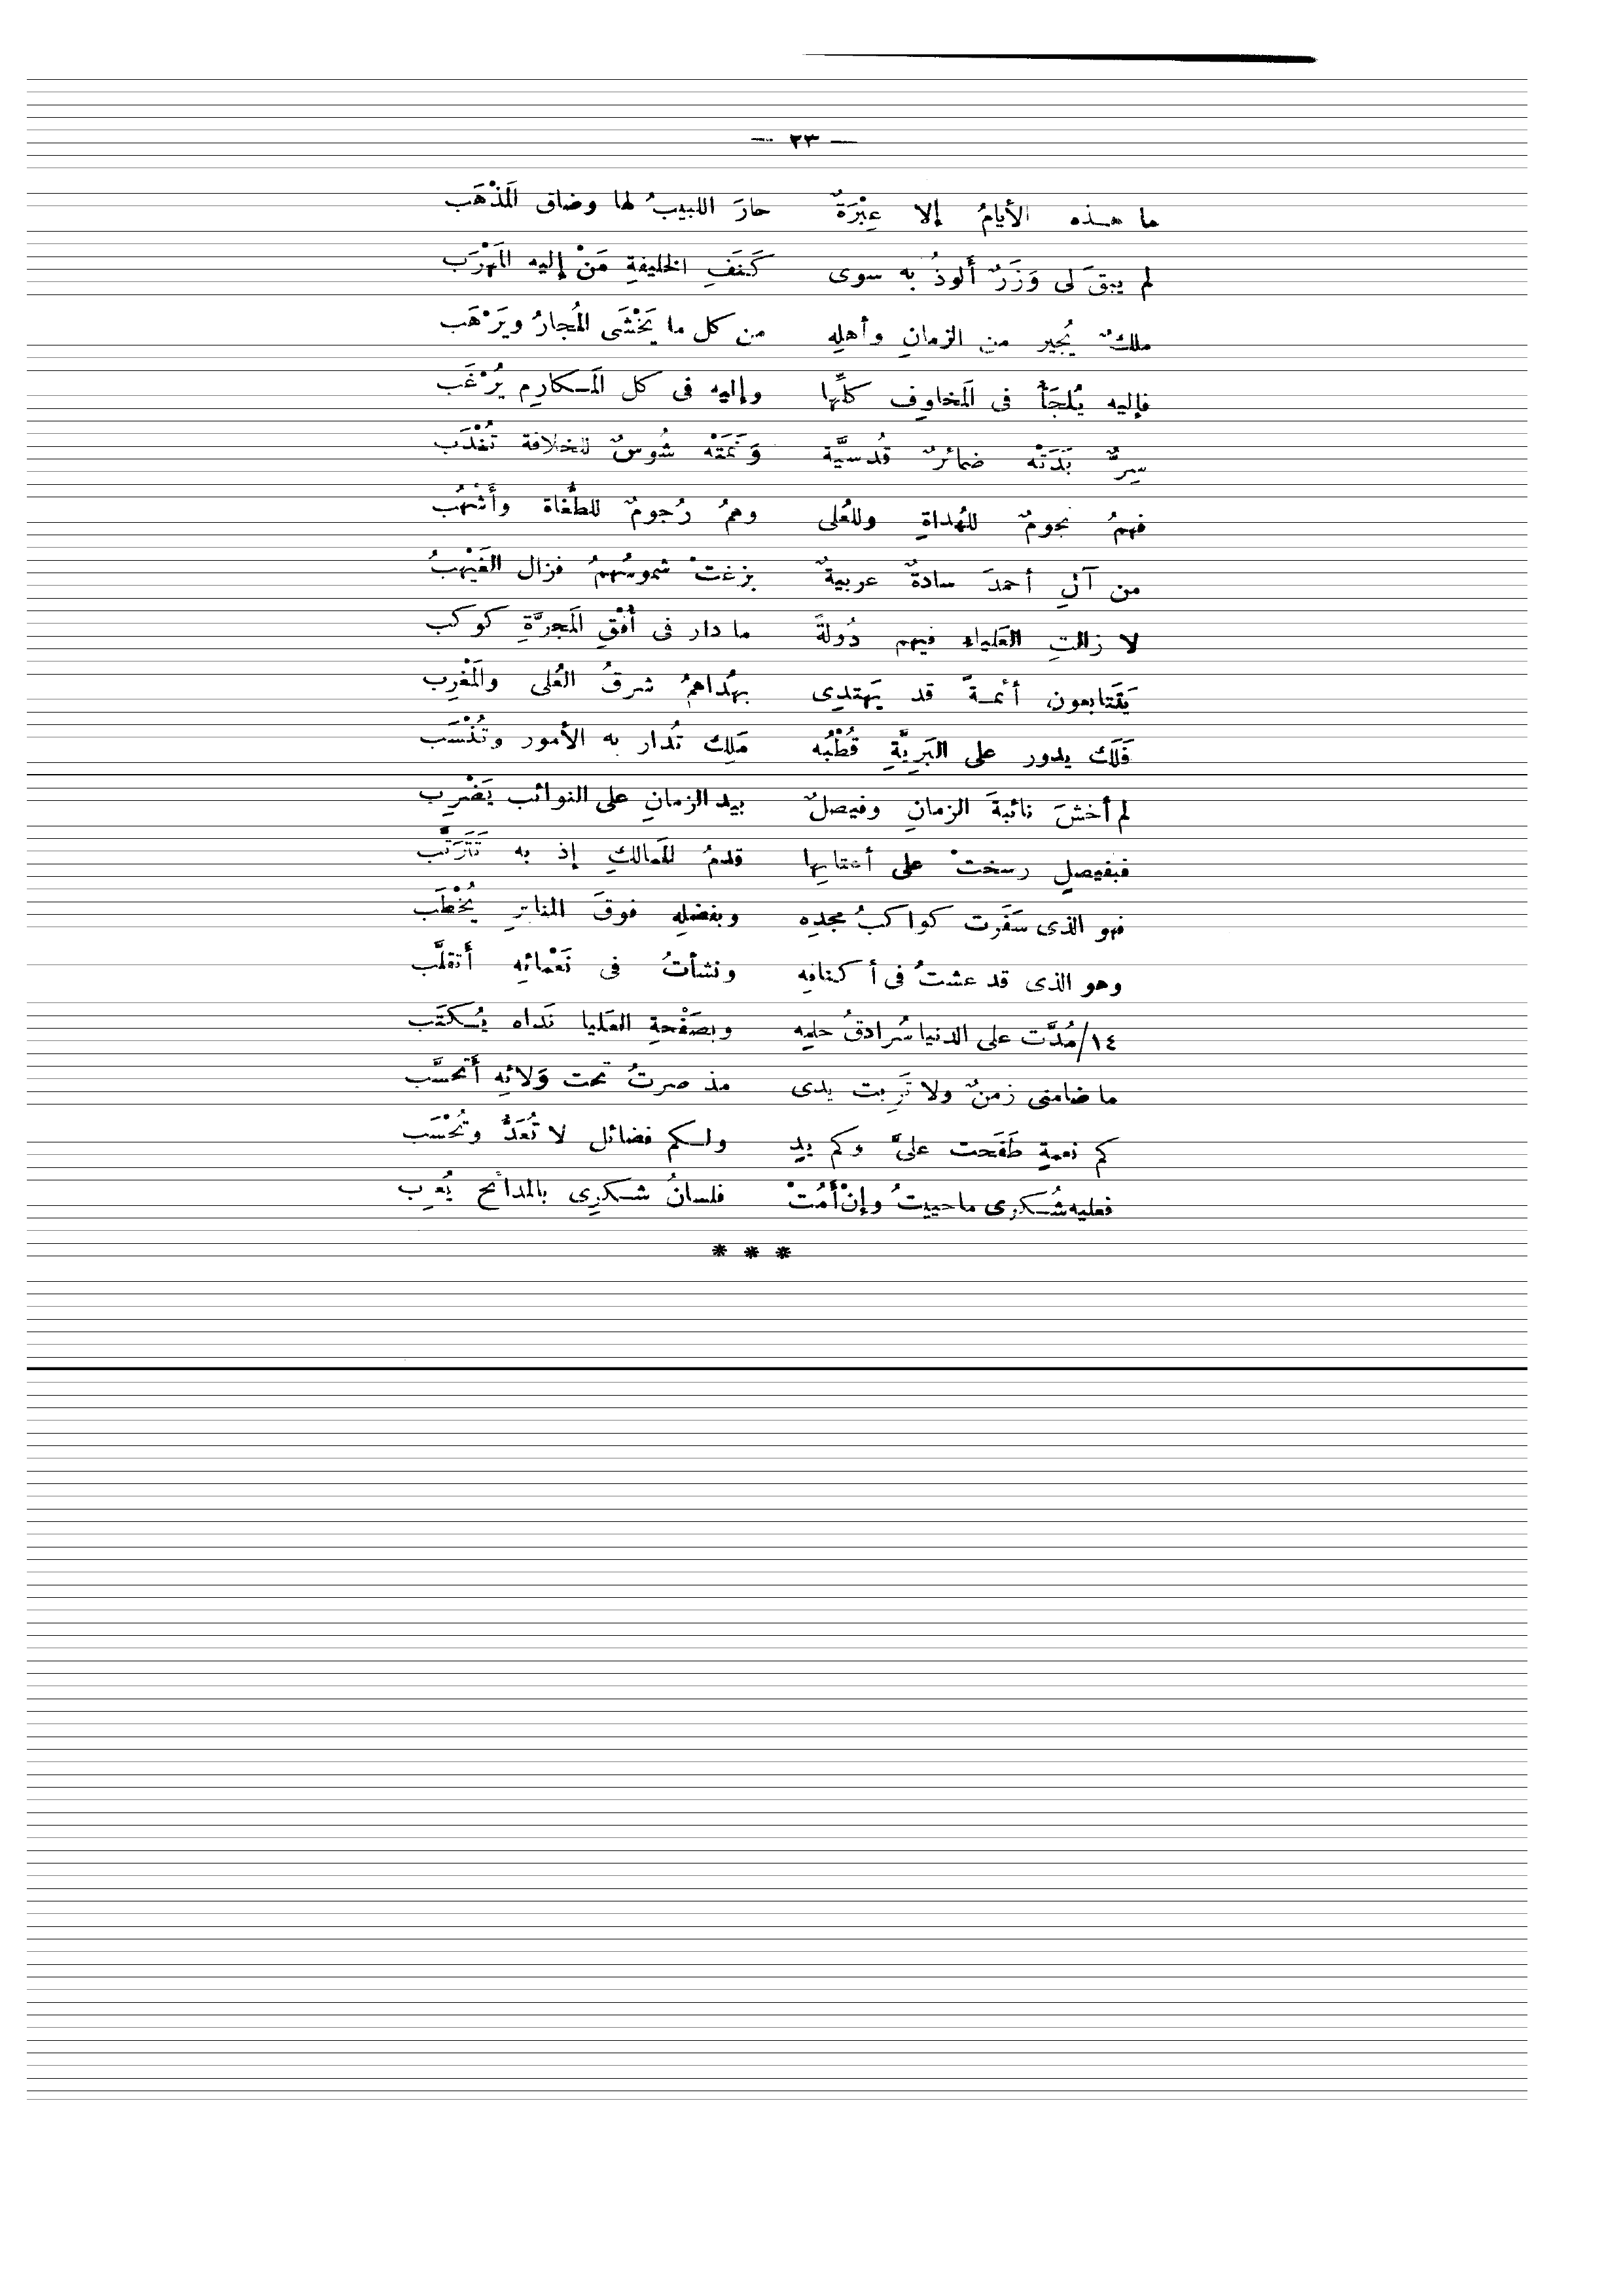 — ٢٣ —
ما هذه الأيامُ إلا عِبْرَةٌ حارَ اللبيبُ لها وضاق المَذْهَب
لم يبقَ لى وَزَرٌ أَلوذُ به سوى كَنَفِ الخليفةِ مَنْ إليه المَهْرَب
ملكٌ يُجير من الزمانِ وأهلِه من كل ما يَخْشَى المُجارُ ويَرْهَب
فإليه يُلجَأُ فى المَخاوِف كلِّها وإليه فى كل المَكارِم يُرْغَب
سِرٌّ بَدَتْه ضمائرٌ قُدسيَّة وَنَمَتْه شُوسٌ للخلافة تُنْدَب
فهمُ نجومٌ للهُداةِ وللعُلى وهمُ رُجومٌ للطُّغاة وأَشْهُب
من آلِ أحمدَ سادةٌ عربيةٌ بزغتْ شموسُهمُ فزال الغَيْهبُ
لا زالتِ العَلياء فيهم دُولةً ما دار فى أُفْقِ المَجرَّةِ كوكب
يَتَتابعون أئمةً قد يَهتدِى بهُداهمُ شرقُ العُلى والمَغْرِب
فَلَك يدور على البَرِيَّةِ قُطْبُه مَلِك تُدار به الأمور وتُنْسَب
لم أخشَ نائبةَ الزمانِ وفيصلٌ بيد الزمانِ على النوائب يَضْرِب
فبفيصلٍ رسختْ على أعتابِها قدمُ المَمالكِ إذ به تَتَرَتَّب
فهو الذى سَفَرت كواكبُ مجدِه وبفضلِه فوقَ المنابرِ يُخْطَب
وهو الذى قد عشتُ فى أكنافِه ونشأتُ فى نَعْمائِه أَتقلَّب
١٤/مُدَّت على الدنيا سُرادقُ حلمِه وبصَفْحةِ العَليا نَداه يُكتَب
ما ضامنى زمنٌ ولا تَرِبت يدى مذ صرتُ تحت وَلائِه أَتحسَّب
كم نعمةٍ طَفَحت علىَّ وكم يدٍ ولكم فضائل لا تُعَدُّ وتُحْسَب
فعليه شُكرى ما حييتُ وإنْ أَمُتْ فلسانُ شكرِى بالمدائح يُعرِب
* * *